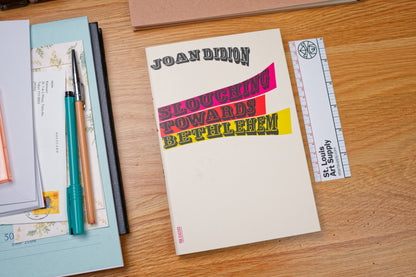 JOAN DIDION
SLOUCHING
TOWARDS
BETHLEHEM
St. Louis
Art Supply
50